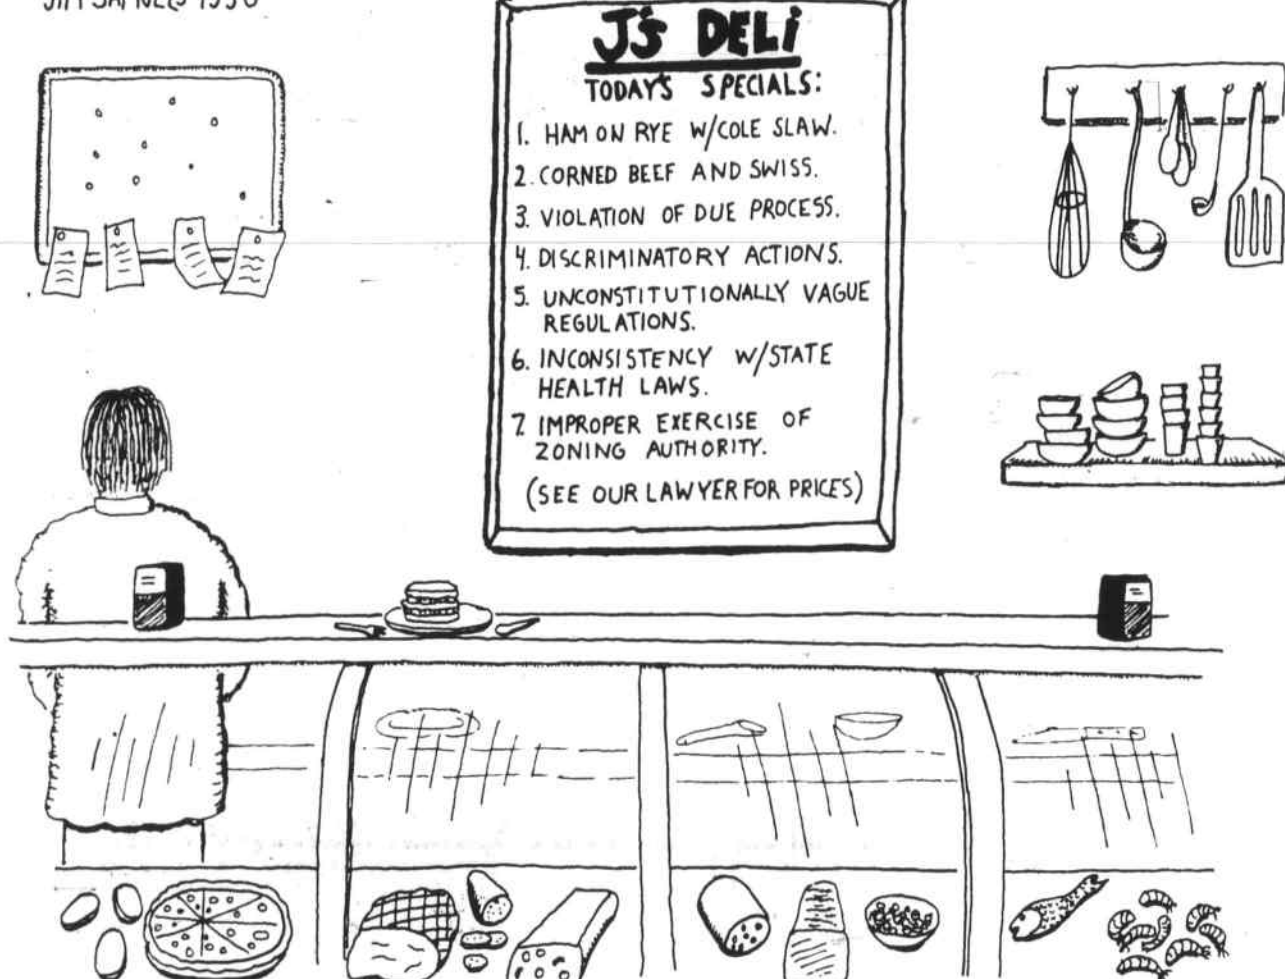 J's DELi
TODAY'S SPECIALS:
1. HAM ON RYE W/COLE SLAW.
2. CORNED BEEF AND SWISS.
3. VIOLATION OF DUE PROCESS.
4. DISCRIMINATORY ACTIONS.
5. UNCONSTITUTIONALLY VAGUE
REGULATIONS.
6. INCONSISTENCY W/STATE
HEALTH LAWS.
7. IMPROPER EXERCISE OF
ZONING AUTHORITY.
(SEE OUR LAWYER FOR PRICES)